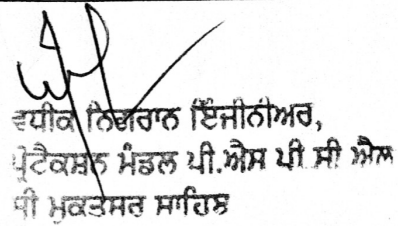 ਵਧੀਕ ਨਿਗਰਾਨ ਇੰਜੀਨੀਅਰ,
ਪ੍ਰੋਟੈਕਸ਼ਨ ਮੰਡਲ ਪੀ.ਐਸ ਪੀ ਸੀ ਐਲ
ਸ੍ਰੀ ਮੁਕਤਸਰ ਸਾਹਿਬ